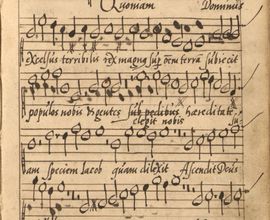 Quoniam Dominus
excelsus terribilis rex magnus sup oēm terrā subiecit
populos nobis & gentes sub pedibus hæreditatē
elegit nobis
am speciem Iacob quam dilexit Ascendit Deus